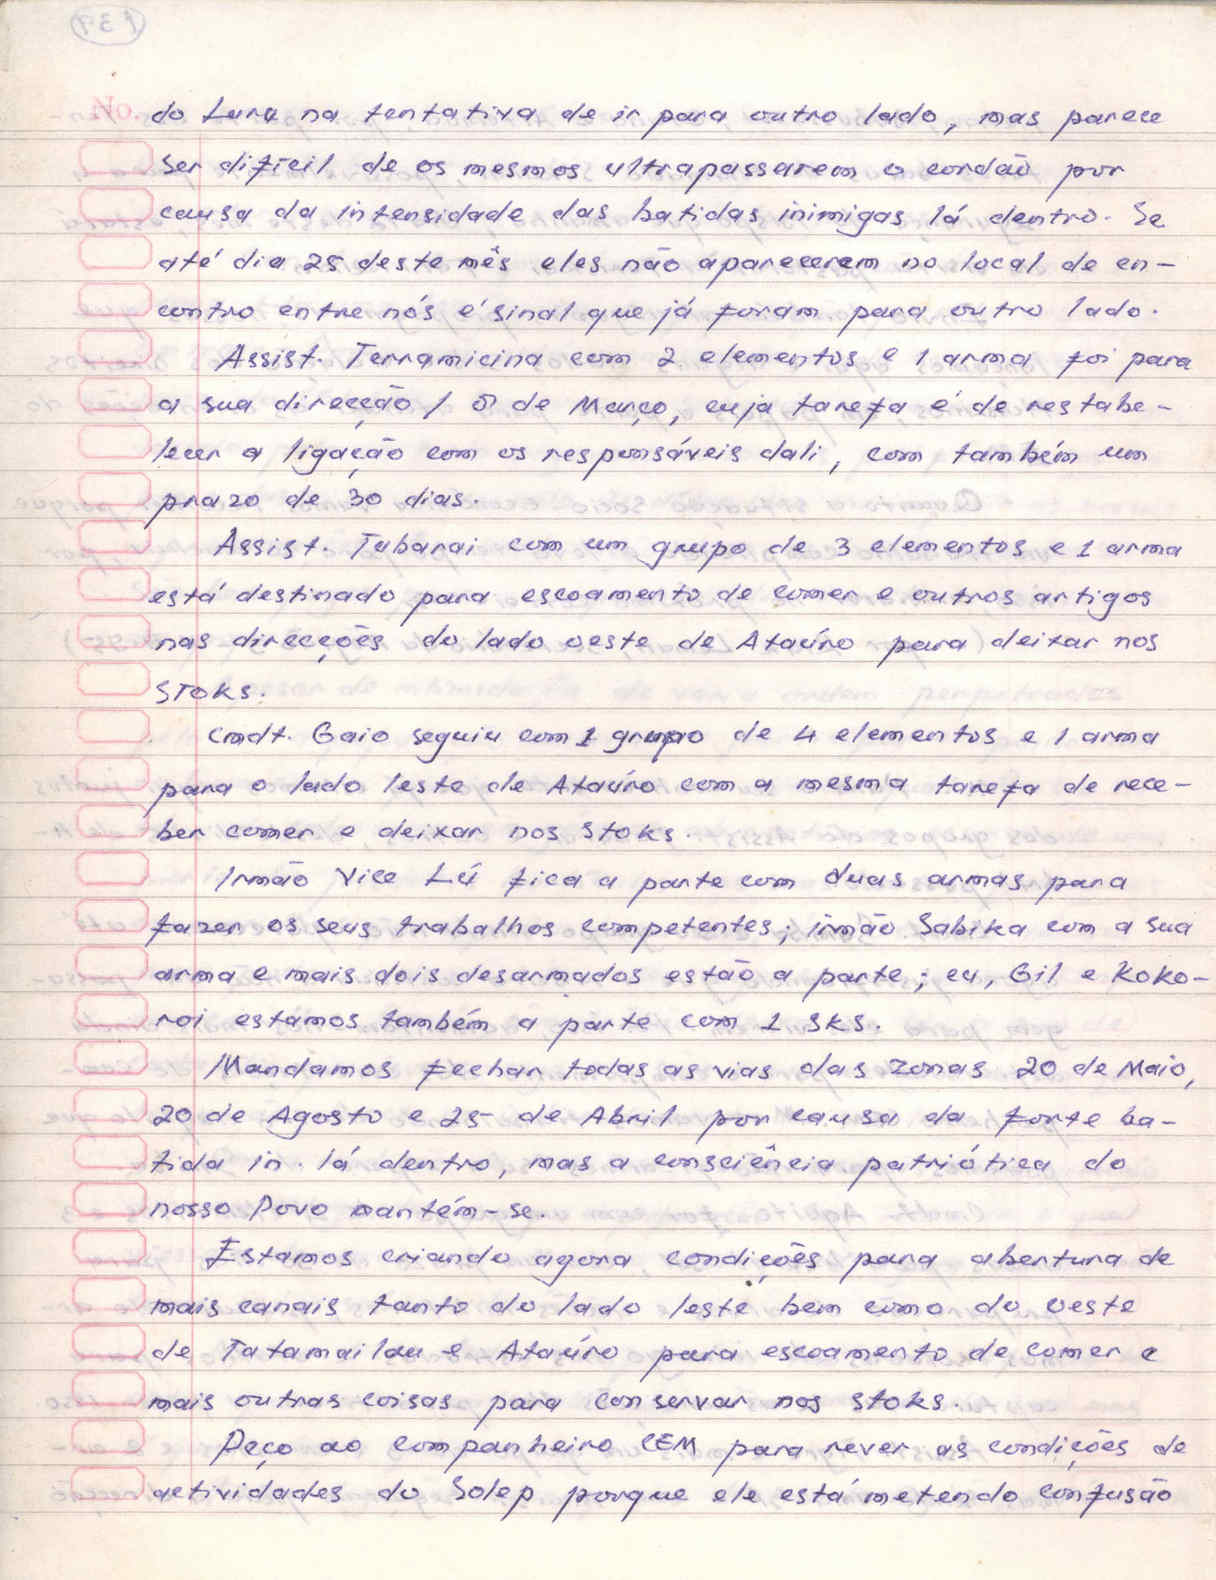 do Luru na tentativa de ir para outro lado, mas parece
ser difícil de os mesmos ultrapassarem o cordão por
causa da intensidade das batidas inimigas lá dentro. Se
até dia 25 deste mês eles não aparecerem no local de en-
contro entre nós é sinal que já foram para outro lado.
Assist. Terramicina com 2 elementos e 1 arma foi para
a sua direcção / 01 de Março, cuja tarefa é de restabe-
lecer a ligação com os responsáveis dali, com também um
prazo de 30 dias.
Assist. Tubarai com um grupo de 3 elementos e 1 arma
está destinado para escoamento de comer e outros artigos
nas direcções do lado oeste de Ataúro para deixar nos
stoks.
Cmdt. Gaio seguiu com 1 grupo de 4 elementos e 1 arma
para o lado leste de Ataúro com a mesma tarefa de rece-
ber comer e deixar nos stoks.
Irmão Vice Lú fica a parte com duas armas para
fazer os seus trabalhos competentes; irmão Sabika com a sua
arma e mais dois desarmados estão a parte; eu, Gil e Koko-
roi estamos também a parte com 1 SKS.
Mandamos fechar todas as vias das zonas 20 de Maio,
20 de Agosto e 25 de Abril por causa da forte ba-
tida in. lá dentro, mas a consciência patriótica do
nosso Povo mantém-se.
Estamos criando agora condições para abertura de
mais canais tanto do lado leste bem como do oeste
de Tatamailau e Ataúro para escoamento de comer e
mais outras coisas para conservar nos stoks.
Peço ao companheiro CEM para rever as condições de
actividades do Solep porque ele está metendo confusão